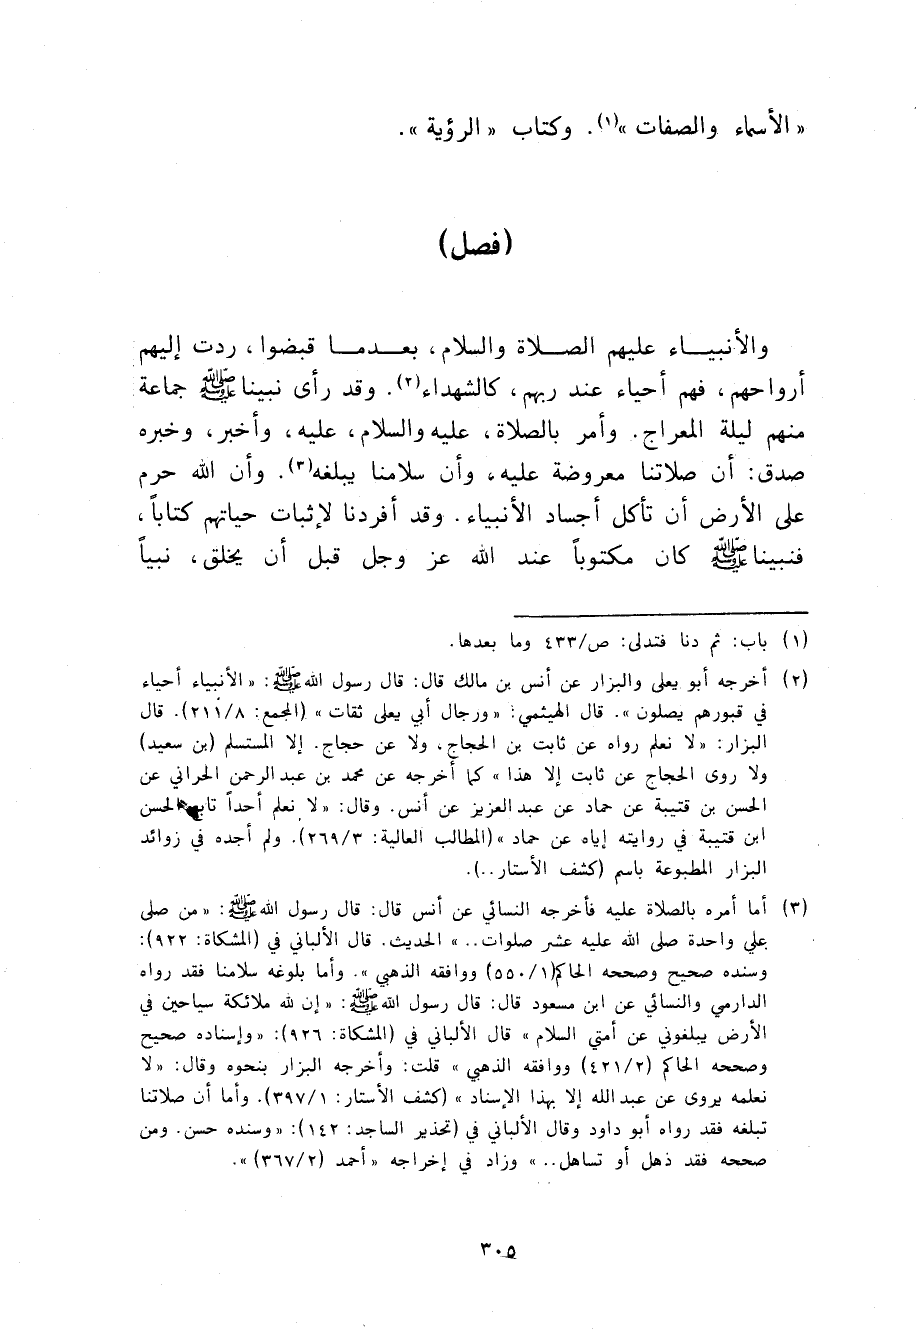 « الأسماء والصفات »(١). وكتاب « الرؤية ».
(فصل)
والأنبيـــاء عليهم الصـــلاة والسلام، بعـدمـــا قبضوا، ردت إليهم
أرواحهم، فهم أحياء عند ربهم، كالشهداء(٢). وقد رأى نبينا ﷺ جماعة
منهم ليلة المعراج. وأمر بالصلاة، عليه والسلام، عليه، وأخبر، وخبره
صدق: أن صلاتنا معروضة عليه، وأن سلامنا يبلغه(٣). وأن الله حرم
على الأرض أن تأكل أجساد الأنبياء. وقد أفردنا لإثبات حياتهم كتاباً،
فنبينا ﷺ كان مكتوباً عند الله عز وجل قبل أن يخلق، نبياً
(١) باب: ثم دنا فتدلى: ص/٤٣٣ وما بعدها.
(٢) أخرجه أبو يعلى والبزار عن أنس بن مالك قال: قال رسول الله ﷺ: « الأنبياء أحياء
في قبورهم يصلون ». قال الهيثمي: « ورجال أبي يعلى ثقات » (المجمع: ٢١١/٨). قال
البزار: « لا نعلم رواه عن ثابت بن الحجاج، ولا عن حجاج. إلا المستسلم (بن سعيد)
ولا روى الحجاج عن ثابت إلا هذا » كما أخرجه عن محمد بن عبد الرحمن الحراني عن
الحسن بن قتيبة عن حماد عن عبد العزيز عن أنس. وقال: « لا نعلم أحداً الحسن
ابن قتيبة في روايته إياه عن حماد » (المطالب العالية: ٢٦٩/٣). ولم أجده في زوائد
البزار المطبوعة باسم (كشف الأستار..).
(٣) أما أمره بالصلاة عليه فأخرجه النسائي عن أنس قال: قال رسول الله ﷺ: « من صلى
علي واحدة صلى الله عليه عشر صلوات.. » الحديث. قال الألباني في (المشكاة: ٩٢٢):
وسنده صحيح وصححه الحاكم(٥٥٠/١) ووافقه الذهبي ». وأما بلوغه سلامنا فقد رواه
الدارمي والنسائي عن ابن مسعود قال: قال رسول الله ﷺ: « إن لله ملائكة سياحين في
الأرض يبلغوني عن أمتي السلام » قال الألباني في (المشكاة: ٩٢٦): « وإسناده صحيح
وصححه الحاكم (٤٢١/٢) ووافقه الذهبي » قلت: وأخرجه البزار بنحوه وقال: « لا
نعلمه يروى عن عبد الله إلا بهذا الإسناد » (كشف الأستار: ٣٩٧/١). وأما أن صلاتنا
تبلغه فقد رواه أبو داود وقال الألباني في (تحذير الساجد: ١٤٢): « وسنده حسن. ومن
صححه فقد ذهل أو تساهل.. » وزاد في إخراجه « أحمد (٣٦٧/٢) ».
٣٠٥